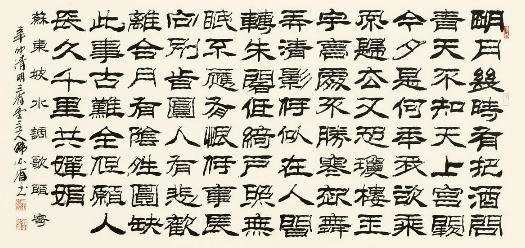 明月幾時有把酒問
青天不知天上宮闕
今夕是何年我欲乘
風歸去又恐瓊樓玉
宇高處不勝寒起舞
弄清影何似在人間
轉朱閣低綺戶照無
眠不應有恨何事長
向別旹圓人有悲歡
離合月有陰晴圓缺
此事古難全但願人
長久千里共嬋娟
蘇東坡水調歌頭
辛卯清明